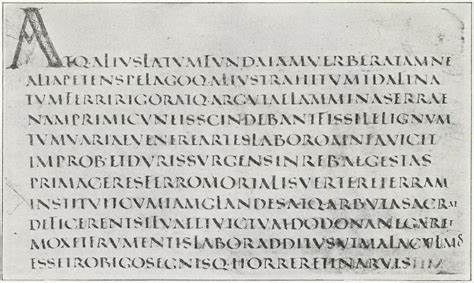 ATQ·ALIVSLATVMFVNDAIAMVERBERATAMNE
ALTAPETENSPELAGOQ·ALIVSTRAHITVMIDALINA
TVMFERRIRIGORATQ·ARGVTAELAMMINASERRAE
NAMPRIMICVNEISSCINDEBANTFISSILELIGNVM
TVMVARIAEVENEREARTESLABOROMNIAVICIT
IMPROB·ETDVRISVRGENSINREB·AEGESTAS
PRIMACERESFERROMORTALISVERTERETERRAM
INSTITVITCVMIAMGLANDESATQ·ARBVTASACRAE
DEFICERENTSILVAEETVICTVMDODONANEGARET
MOXETFRVMENTISLABORADDITVSVTMALACVLMOS
ESSETROBIGOSEGNISQ·HORRERETINARVIS